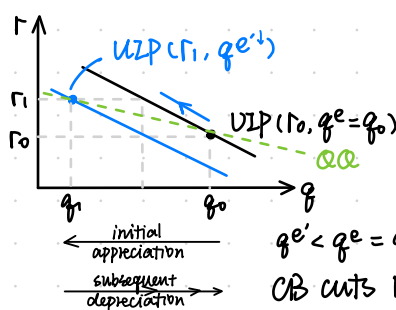 r
UIP(r₁, qᵉ'↓)
r₁
UIP(r₀, qᵉ=q₀)
r₀
QQ
q₁
q₀
q
initial
appreciation
qᵉ'<qᵉ=
subsequent
depreciation
CB cuts